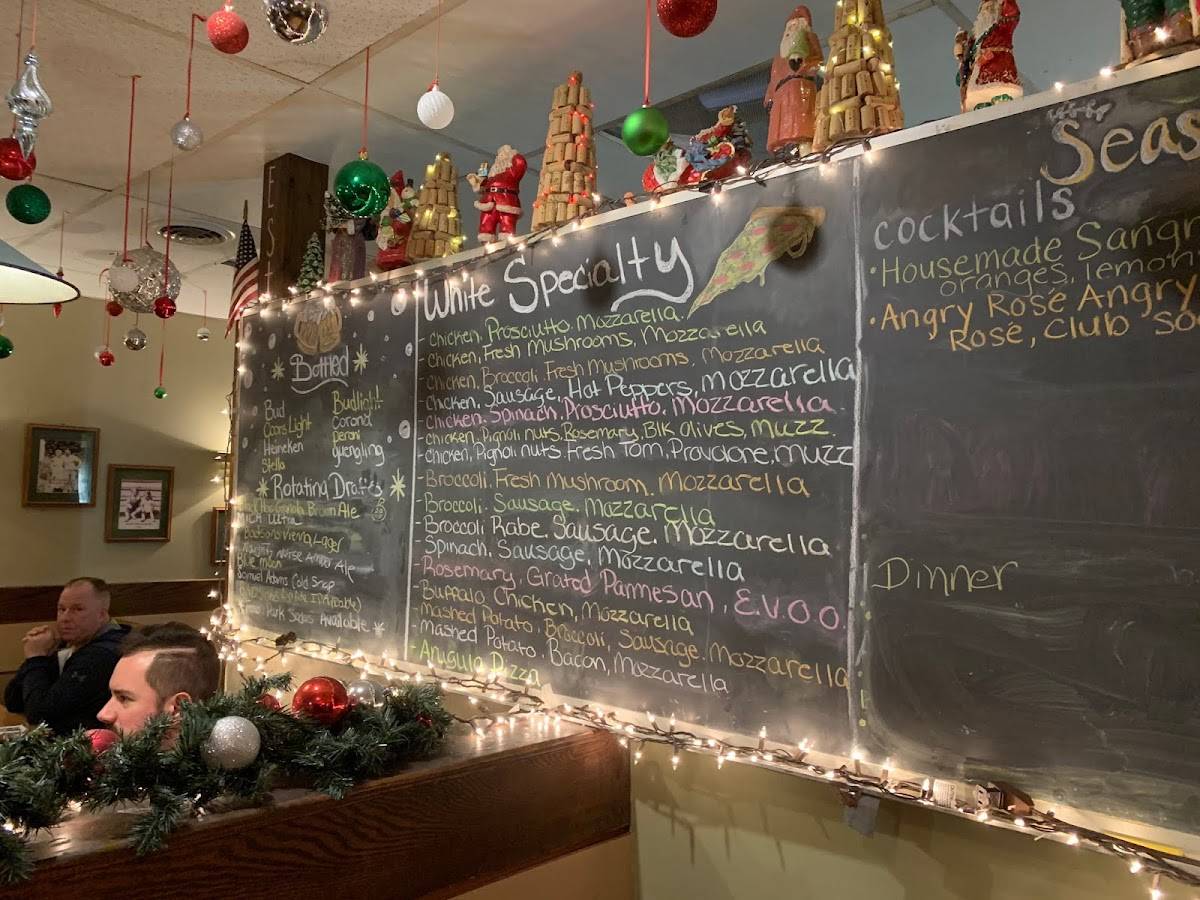 EST
Bottled
Bud
Coors Light
Heineken
Stella
Budlight
Corona
Peroni
Yuengling
Rotating Drafts
Brown Ale
Ultra
Vienna Lager
Ale
Blue Moon
Samuel Adams Cold Snap
Available
White Specialty
- Chicken, Prosciutto, Mozzarella
- Chicken, Fresh Mushrooms, Mozzarella
- Chicken, Broccoli, Fresh Mushrooms, Mozzarella
- Chicken, Sausage, Hot Peppers, Mozzarella
- Chicken, Spinach, Prosciutto, Mozzarella
- Chicken, Pignoli nuts, Rosemary, Blk Olives, Muzz
- Chicken, Pignoli nuts, Fresh Tom, Provolone, Muzz
- Broccoli, Fresh Mushroom, Mozzarella
- Broccoli, Sausage, Mozzarella
- Broccoli Rabe, Sausage, Mozzarella
- Spinach, Sausage, Mozzarella
- Rosemary, Grated Parmesan, E.V.O.O.
- Buffalo Chicken, Mozzarella
- Mashed Potato, Broccoli, Sausage, Mozzarella
- Mashed Potato, Bacon, Mozzarella
- Arugula Pizza
Seas
Cocktails
• Housemade Sangr
oranges, lemon
• Angry Rosé Angry
Rosé, Club So
Dinner